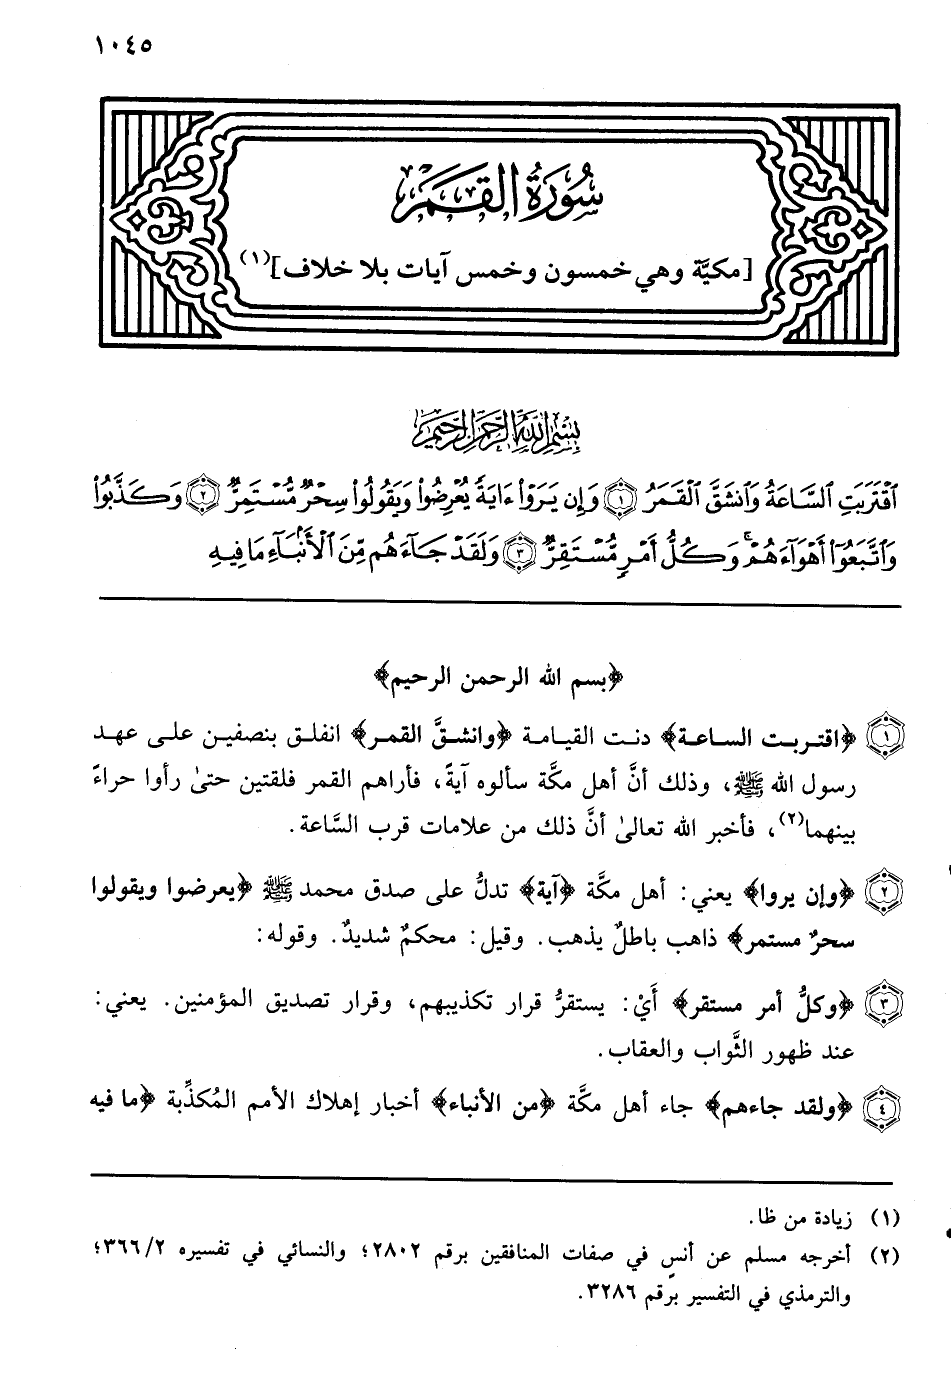 ١٠٤٥
سُورَةُ القَمَر
[مكيَّة وهي خمسون وخمس آيات بلا خلاف](١)
بِسْمِ اللَّهِ الرَّحْمَٰنِ الرَّحِيمِ
ٱقْتَرَبَتِ ٱلسَّاعَةُ وَٱنشَقَّ ٱلْقَمَرُ ۝١ وَإِن يَرَوْا۟ ءَايَةً يُعْرِضُوا۟ وَيَقُولُوا۟ سِحْرٌ مُّسْتَمِرٌّ ۝٢ وَكَذَّبُوا۟
وَٱتَّبَعُوٓا۟ أَهْوَآءَهُمْ ۚ وَكُلُّ أَمْرٍ مُّسْتَقِرٌّ ۝٣ وَلَقَدْ جَآءَهُم مِّنَ ٱلْأَنۢبَآءِ مَا فِيهِ
﴿بسم الله الرحمن الرحيم﴾
۝١ ﴿اقتربت الساعة﴾ دنت القيامة ﴿وانشقَّ القمر﴾ انفلق بنصفين على عهد
رسول الله ﷺ، وذلك أنَّ أهل مكَّة سألوه آيةً، فأراهم القمر فلقتين حتىٰ رأوا حراءً
بينهما(٢)، فأخبر الله تعالىٰ أنَّ ذلك من علامات قرب السَّاعة.
۝٢ ﴿وإن يروا﴾ يعني: أهل مكَّة ﴿آية﴾ تدلُّ على صدق محمد ﷺ ﴿يعرضوا ويقولوا
سحرٌ مستمر﴾ ذاهب باطلٌ يذهب. وقيل: محكمٌ شديدٌ. وقوله:
۝٣ ﴿وكلُّ أمر مستقر﴾ أَيْ: يستقرُّ قرار تكذيبهم، وقرار تصديق المؤمنين. يعني:
عند ظهور الثَّواب والعقاب.
۝٤ ﴿ولقد جاءهم﴾ جاء أهل مكَّة ﴿من الأنباء﴾ أخبار إهلاك الأمم المُكذِّبة ﴿ما فيه
(١) زيادة من ظا.
(٢) أخرجه مسلم عن أنسٍ في صفات المنافقين برقم ٢٨٠٢؛ والنسائي في تفسيره ٣٦٦/٢؛
والترمذي في التفسير برقم ٣٢٨٦.